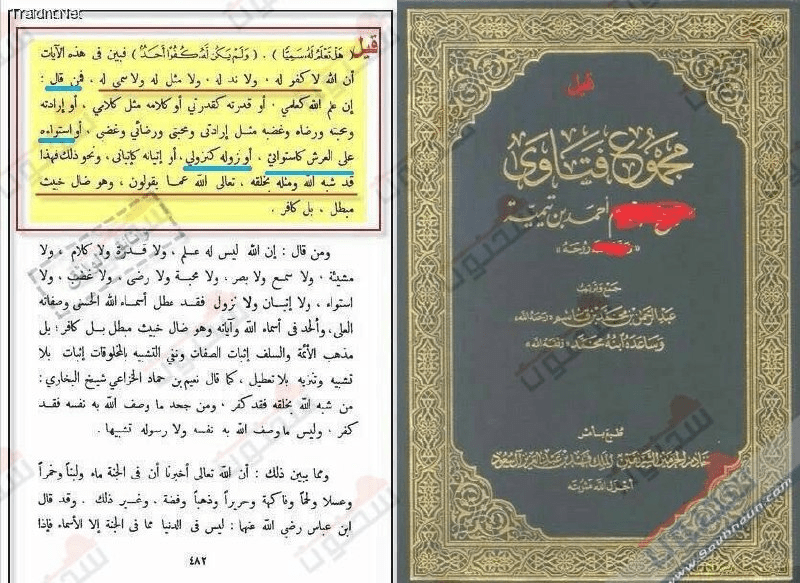 TraidntNet
قيل
لا هَلْ تَعْلَمُ لَهُ سَمِيًّا ) . ( وَلَمْ يَكُن لَهُ كُفُوًا أَحَدٌ ) فبين في هذه الآيات
أن الله لا كفو له . ولا ند له . ولا مثل له ولا سمي له . فمن قال :
إن علم الله كعلمي . أو قدرته كقدرتي أو كلامه مثل كلامي ، أو إرادته
ومحبته ورضاه وغضبه مثل إرادتي ومحبتي ورضائي وغضبي . أو استواءه
على العرش كاستوائي ، أو نزوله كنزولي ، أو إتيانه كإتياني ، ونحو ذلك فهذا
قد شبه الله ومثله بخلقه ، تعالى الله عما يقولون ، وهو ضال خبيث
مبطل ، بل كافر .
ومن قال : إن الله ليس له علم ، ولا قدرة ولا كلام ، ولا
مشيئة . ولا سمع ولا بصر ، ولا محبة ولا رضى ، ولا غضب ، ولا
استواء ، ولا إتيان ولا نزول فقد عطل أسماء الله الحسنى وصفاته
العلى، وألحد في أسماء الله وآياته وهو ضال خبيث مبطل بل كافر؛ بل
مذهب الأئمة والسلف إثبات الصفات ونفي التشبيه بالمخلوقات إثبات بلا
تشبيه وتنزيه بلا تعطيل ، كما قال نعيم بن حماد الخزاعي شيخ البخاري :
من شبه الله بخلقه فقد كفر . ومن جحد ما وصف الله به نفسه فقد
كفر . وليس ما وصف الله به نفسه ولا رسوله تشبيها .
ومما يبين ذلك : أن الله تعالى أخبرنا أن في الجنة ماء ولبناً وخمراً
وعسلا ولحماً وفاكهة وحريراً وذهباً وفضة . وغير ذلك . وقد قال
ابن عباس رضي الله عنهما : ليس في الدنيا مما في الجنة إلا الأسماء فإذا
٤٨٢
قيل
مجموع فتاوى
أحمد بن تيمية
روحه
جمع وترتيب
عبد الرحمن بن محمد بن قاسم «رحمه الله»
وساعده ابنه محمد «وفقه الله»
طبع بأمر
خادم الحرمين الشريفين الملك فهد بن عبد العزيز آل سعود
أجزل الله مثوبته
سحنون
www.souhnoun.com